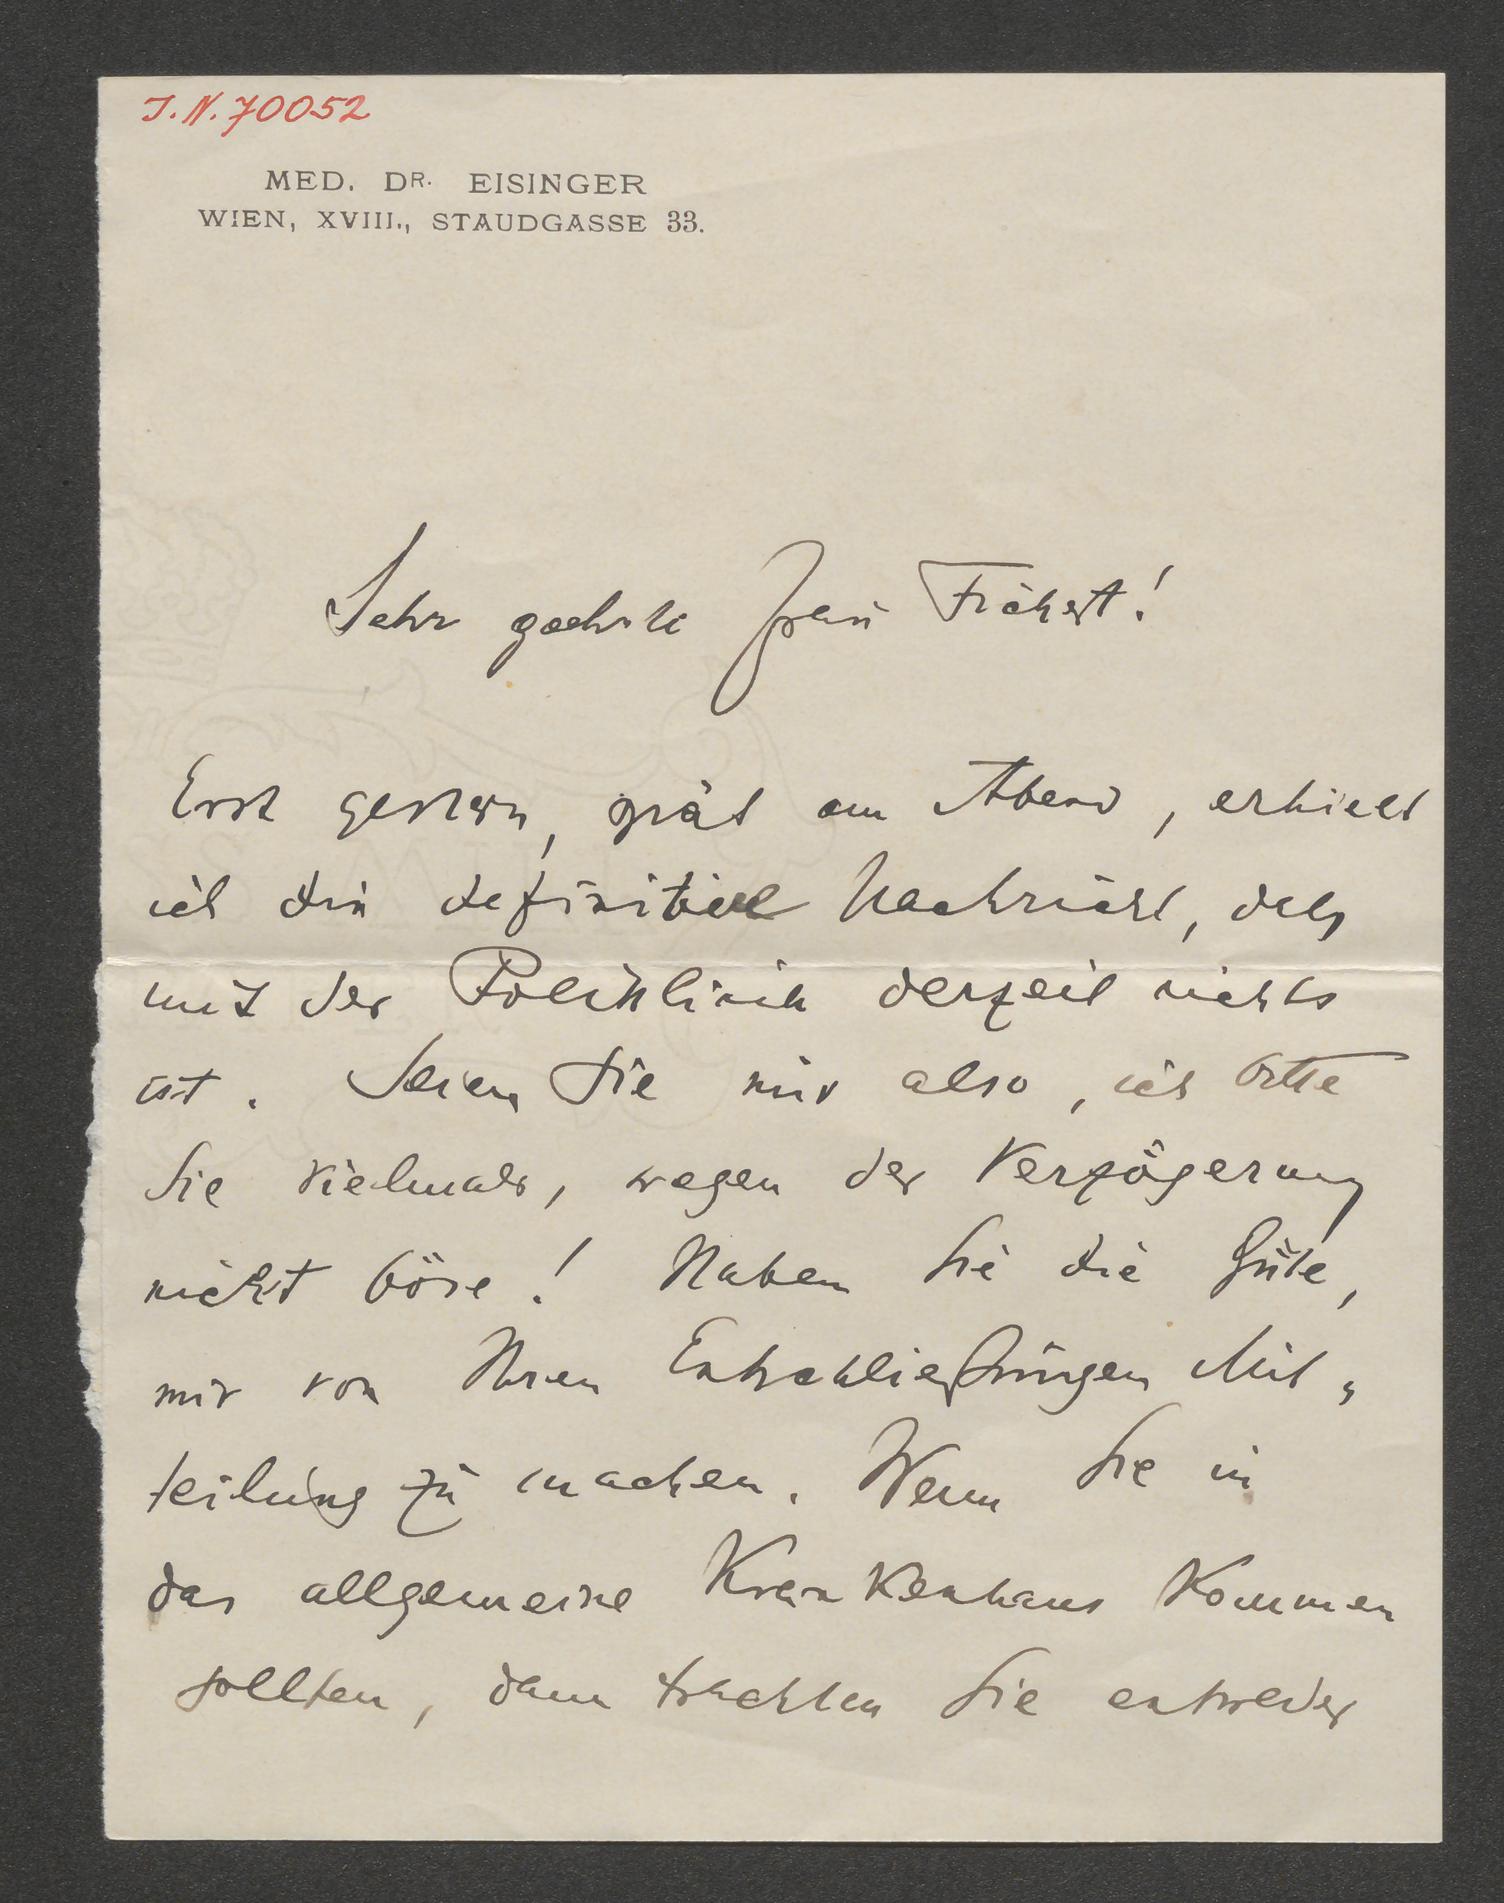 I.N. 70052
MED. DR. EISINGER
WIEN, XVIII., STAUDGASSE 33.
Sehr geehrte Frau Fickert!
Erst gestern, spät am Abend, erhielt
ich die definitive Nachricht, daß
mit der Poliklinik derzeit nichts
ist. Seien Sie mir also, ich bitte
Sie vielmals, wegen der Verzögerung
nicht böse! Haben Sie die Güte,
mir von Ihren Entschließungen Mit„
teilung zu machen. Wenn Sie in
das allgemeine Krankenhaus kommen
sollten, dann trachten Sie entweder